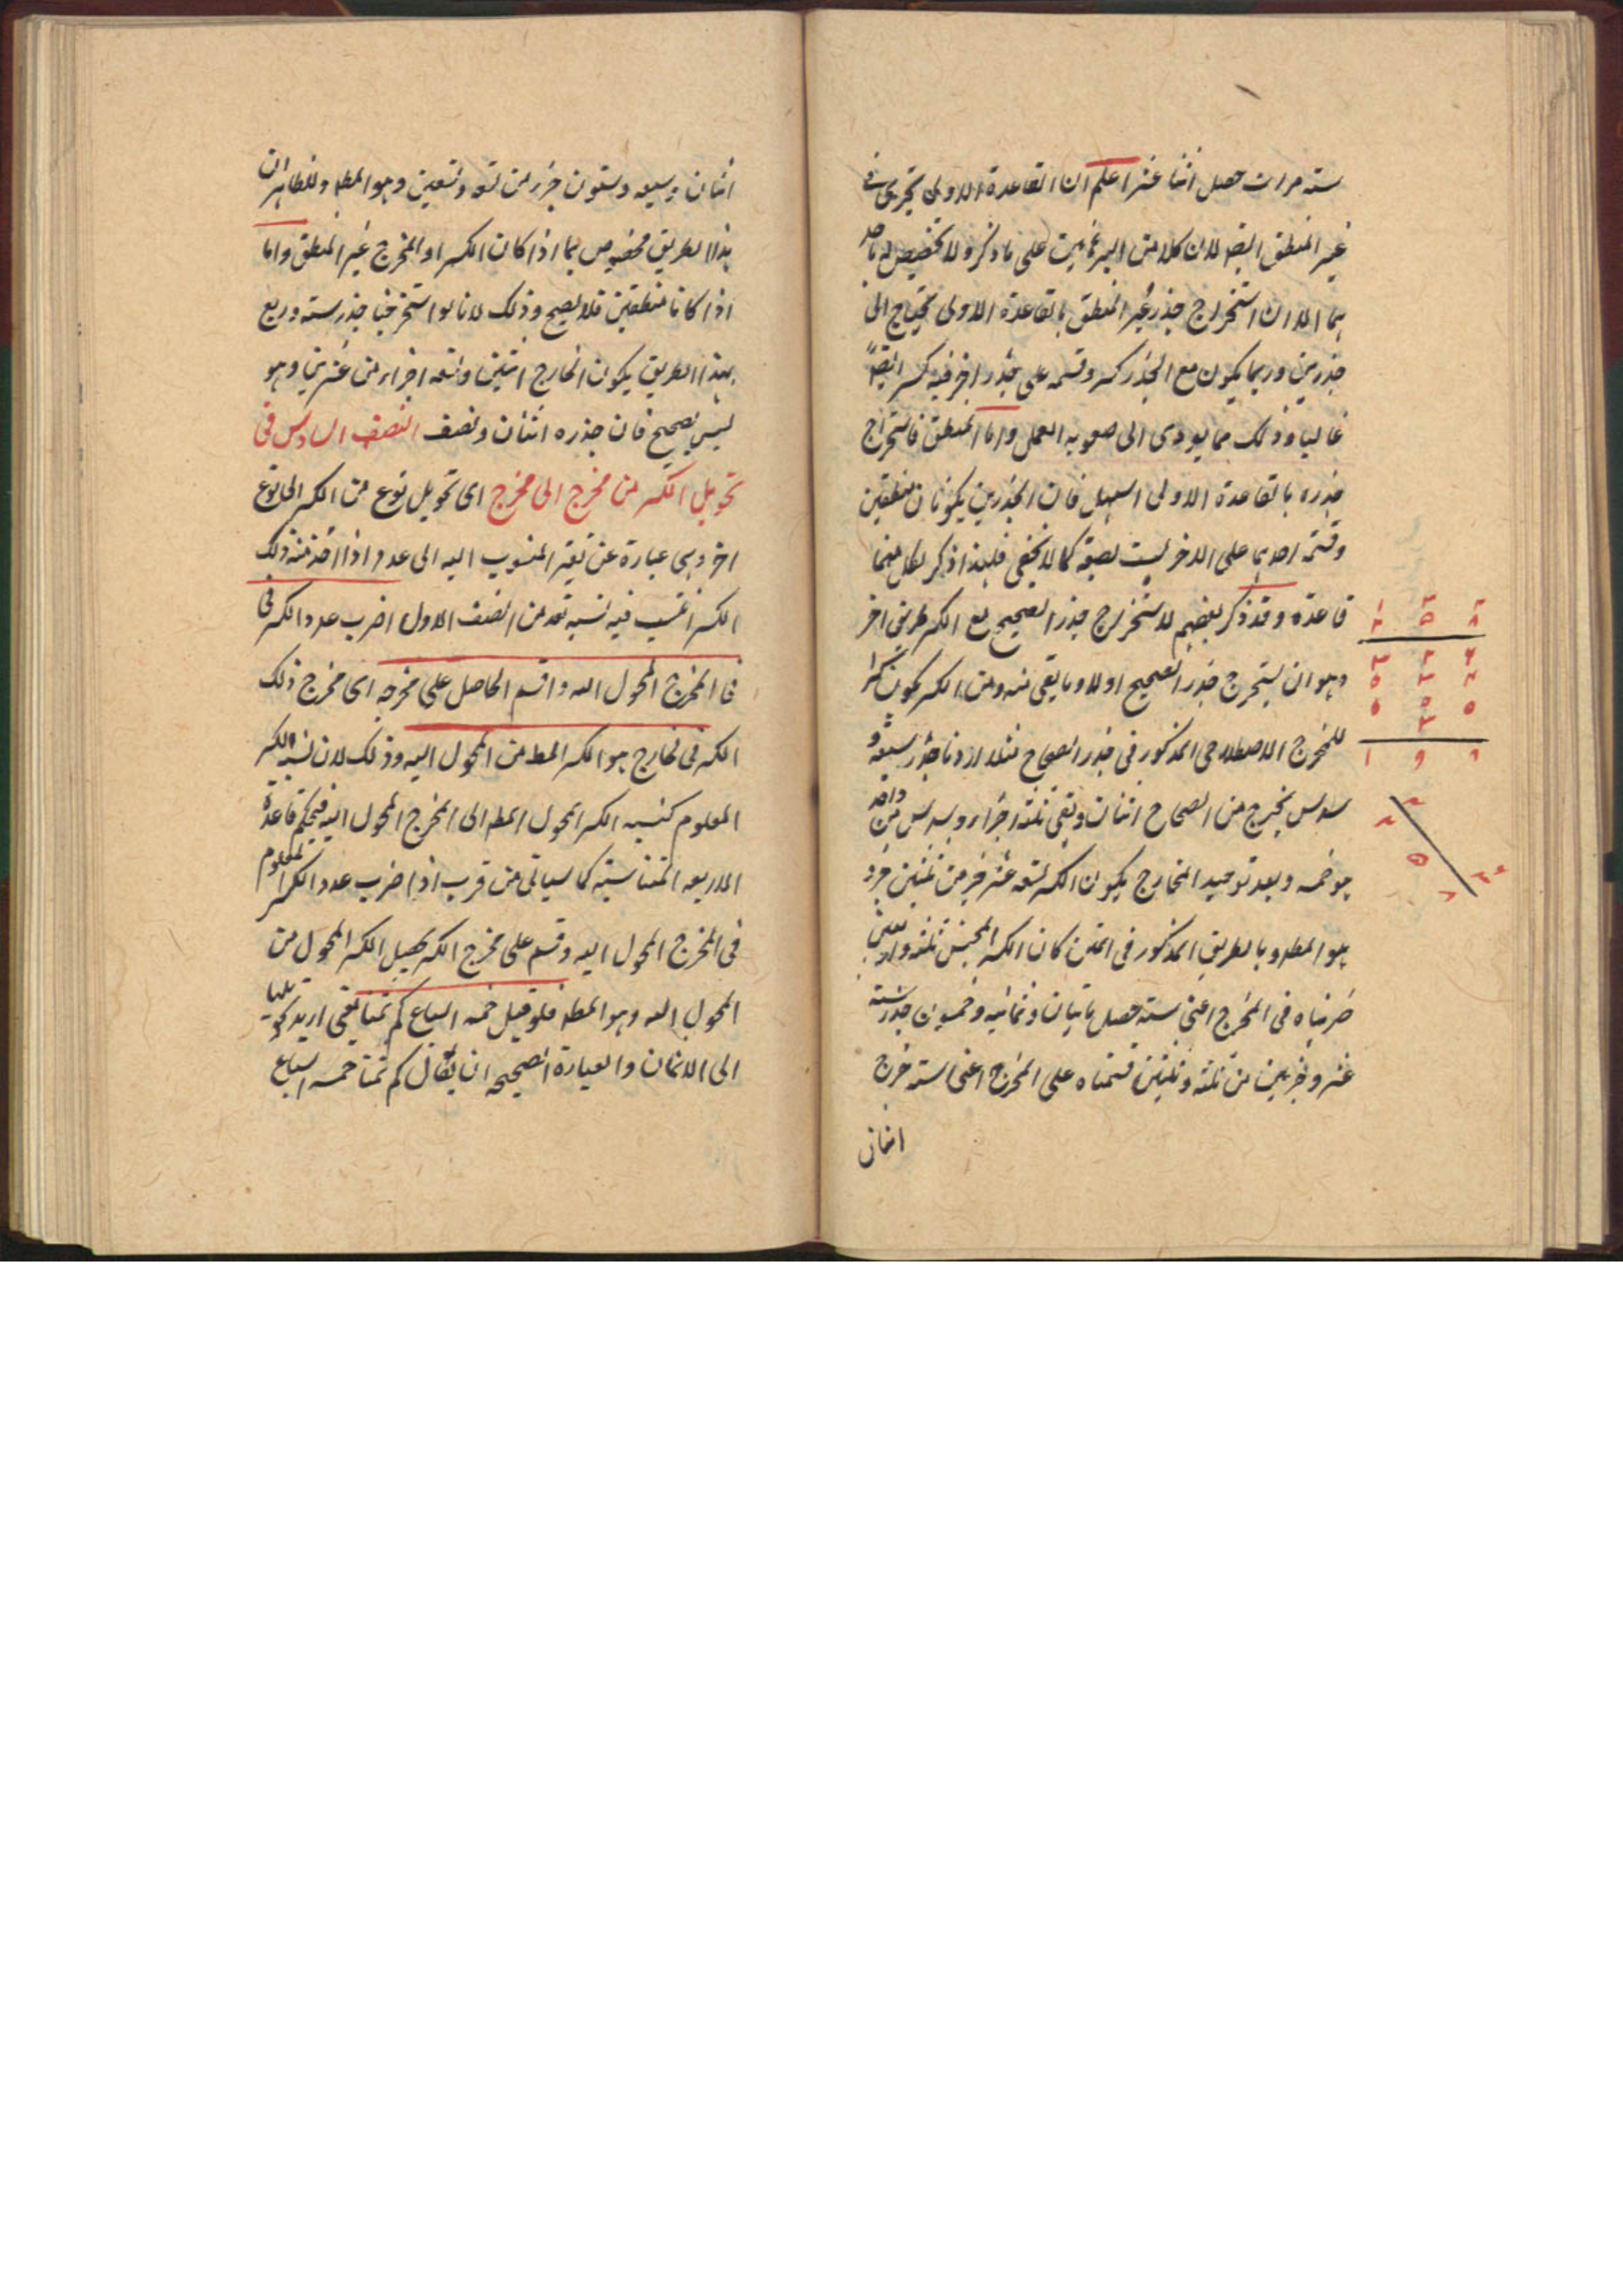 سته مرات حصل اثنا عشر اعلم ان القاعدة الاولى تجرى فى
غير المنطق ايضا لان كلا من البرهانين على ما ذكر ولا تخصيص له باحد
هما الا ان استخراج جذر غير المنطق بالقاعدة الاولى يحتاج الى
جذرين وربما يكون مع الجذر كسر وقسمه على جذر اخر فيه كسر ايضاً
غالبا وذلك مما يودى الى صعوبه العمل واما المنطق فاستخراج
جذره بالقاعدة الاولى اسهل فان الجذرين يكونان منطقين
وقسمة احدهما على الاخر ليست بصعبة كما لا يخفى فلهذا ذكر لكل منهما
قاعدة وقد ذكر بعضهم لاستخراج جذر الصحيح مع الكسر طريق اخر
وهو ان يستخرج جذر الصحيح اولا وما يبقى منه ومن الكسر يكون كسرا
للمخرج الاصطلاحى المذكور فى جذر الصحاح مثلا اردنا جذر سبعة و
سدس يخرج من الصحاح اثنان وتبقى ثلثه اجزاء وسدس من واحد
هو خمسه وبعد توحيد المخارج يكون الكسر تسعه عشر جزء من ثلثين جزء
هو المطه وبالطريق المذكور فى المتن كان الكسر المجنس ثلثه واربعين
ضربناه فى المخرج اعنى سته حصل مايتان وثمانيه وخمسون جذره ستة
عشر وجزئين من ثلثه وثلثين قسمناه على المخرج اعنى سته خرج
اثنان
اثنان وسبعه وستون جزء من تسعه وتسعين وهو المطه والظاهر ان
هذا الطريق مخصوص بما اذا كان الكسر او المخرج غير المنطق واما
اذا كانا منطقين فلا يصح وذلك لانا لو استخرجنا جذر سته وربع
بهذا الطريق يكون الخارج اثنين وتسعه اجزاء من عشرين وهو
ليس بصحيح فان جذره اثنان ونصف الفصل السادس فى
تحويل الكسر من مخرج الى مخرج اى تحويل نوع من الكسر الى نوع
اخر وهى عبارة عن تغير المنسوب اليه الى عدد اذا اخذ منه ذلك
الكسر اضرب عدد الكسر فى
فى المخرج المحول اليه واقسم الحاصل على مخرجه اى مخرج ذلك
الكسر فالخارج هو الكسر المطه من المحول اليه وذلك لان نسبة الكسر
المعلوم كنسبه الكسر المحول المطه الى المخرج المحول اليه فبحكم قاعدة
الاربعه المتناسبة كما سياتى من قريب اذا ضرب عدد الكسر المعلوم
فى المخرج المحول اليه وقسم على مخرج الكسر يحصل الكسر المحول من
المحول اليه وهو المطه فلو قيل خمسه اسباع كم ثمنا يعنى اريد تحويلها
الى الاثمان والعبارة الصحيحه ان يقال كم ثمنا خمسه اسباع